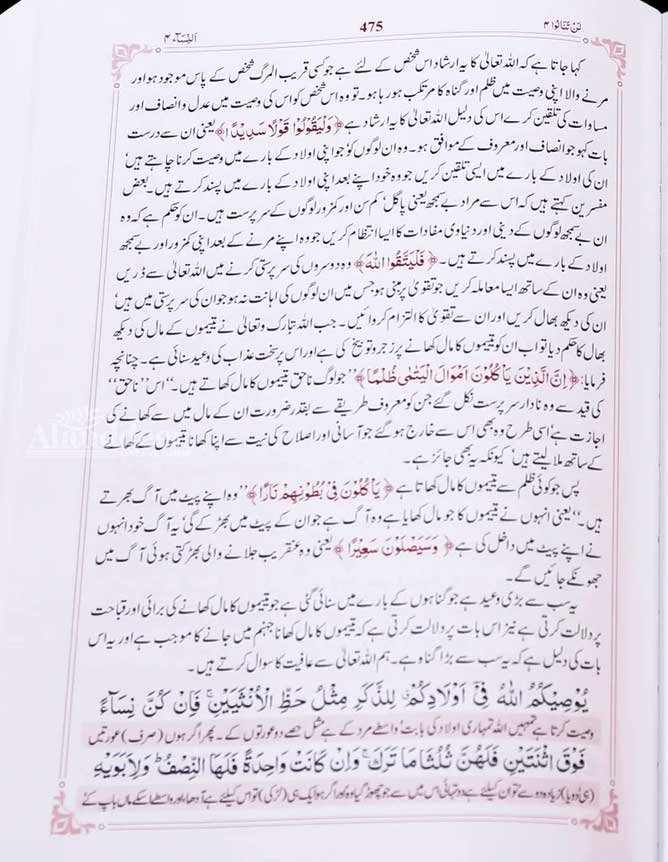 لَنْ تَنَالُوا ۴ 475 اَلنِّسَاء ۴
کہا جاتا ہے کہ اللہ تعالیٰ کا یہ ارشاد اس شخص کے لئے ہے جو کسی قریب المرگ شخص کے پاس موجود ہو اور
مرنے والا اپنی وصیت میں ظلم اور گناہ کا مرتکب ہو رہا ہو۔ تو وہ اس شخص کو اس کی وصیت میں عدل و انصاف اور
مساوات کی تلقین کرے اس کی دلیل اللہ تعالیٰ کا یہ ارشاد ہے ﴿وَلْيَقُوْلُوْا قَوْلًا سَدِيْدًا﴾ یعنی ان سے درست
بات کہو جو انصاف اور معروف کے موافق ہو۔ وہ ان لوگوں کو جو اپنی اولاد کے بارے میں وصیت کرنا چاہتے ہیں‘
ان کی اولاد کے بارے میں ایسی تلقین کریں جو وہ خود اپنے بعد اپنی اولاد کے بارے میں پسند کرتے ہیں۔ بعض
مفسرین کہتے ہیں کہ اس سے مراد بے سمجھ یعنی پاگل‘ کم سن اور کمزور لوگوں کے سرپرست ہیں۔ ان کو حکم ہے کہ وہ
ان بے سمجھ لوگوں کے دینی اور دنیاوی مفادات کا ایسا انتظام کریں جو وہ اپنے مرنے کے بعد اپنی کمزور اور بے سمجھ
اولاد کے بارے میں پسند کرتے ہیں۔ ﴿فَلْيَتَّقُوا اللّٰهَ﴾ وہ دوسروں کی سرپرستی کرنے میں اللہ تعالیٰ سے ڈریں
یعنی وہ ان کے ساتھ ایسا معاملہ کریں جو تقویٰ پر مبنی ہو جس میں ان لوگوں کی اہانت نہ ہو جو ان کی سرپرستی میں ہیں‘
ان کی دیکھ بھال کریں اور ان سے تقویٰ کا التزام کروائیں۔ جب اللہ تبارک و تعالیٰ نے یتیموں کے مال کی دیکھ
بھال کا حکم دیا تو اب ان کو یتیموں کا مال کھانے پر زجر و توبیخ کی ہے اور اس پر سخت عذاب کی وعید سنائی ہے۔ چنانچہ
فرمایا: ﴿اِنَّ الَّذِيْنَ يَاْكُلُوْنَ اَمْوَالَ الْيَتٰمٰى ظُلْمًا﴾ ”جو لوگ ناحق یتیموں کا مال کھاتے ہیں۔“ اس ”ناحق“
کی قید سے وہ نادار سرپرست نکل گئے جن کو معروف طریقے سے بقدر ضرورت ان کے مال میں سے کھانے کی
اجازت ہے‘ اسی طرح وہ بھی اس سے خارج ہو گئے جو آسانی اور اصلاح کی نیت سے اپنا کھانا یتیموں کے کھانے
کے ساتھ ملا لیتے ہیں‘ کیونکہ یہ بھی جائز ہے۔
پس جو کوئی ظلم سے یتیموں کا مال کھاتا ہے ﴿يَاْكُلُوْنَ فِيْ بُطُوْنِهِمْ نَارًا﴾ ”وہ اپنے پیٹ میں آگ بھرتے
ہیں۔“ یعنی انہوں نے یتیموں کا جو مال کھایا ہے وہ آگ ہے جو ان کے پیٹ میں بھڑکے گی‘ یہ آگ خود انہوں
نے اپنے پیٹ میں داخل کی ہے ﴿وَسَيَصْلَوْنَ سَعِيْرًا﴾ یعنی وہ عنقریب جلانے والی بھڑکتی ہوئی آگ میں
جھونکے جائیں گے۔
یہ سب سے بڑی وعید ہے جو گناہوں کے بارے میں سنائی گئی ہے جو یتیموں کا مال کھانے کی برائی اور قباحت
پر دلالت کرتی ہے نیز اس بات پر دلالت کرتی ہے کہ یتیموں کا مال کھانا جہنم میں جانے کا موجب ہے اور یہ اس
بات کی دلیل ہے کہ یہ سب سے بڑا گناہ ہے۔ ہم اللہ تعالیٰ سے عافیت کا سوال کرتے ہیں۔
يُوْصِيْكُمُ اللّٰهُ فِيْٓ اَوْلَادِكُمْ لِلذَّكَرِ مِثْلُ حَظِّ الْاُنْثَيَيْنِ ۚ فَاِنْ كُنَّ نِسَآءً
وصیت کرتا ہے تمہیں اللہ تمہاری اولاد کی بابت‘ واسطے مرد کے ہے مثل حصے دو عورتوں کے۔ پھر اگر ہوں (صرف) عورتیں
فَوْقَ اثْنَتَيْنِ فَلَهُنَّ ثُلُثَا مَا تَرَكَ ۚ وَاِنْ كَانَتْ وَاحِدَةً فَلَهَا النِّصْفُ ۭ وَلِاَبَوَيْهِ
(ہی دو یا) زیادہ دو سے تو ان کیلئے ہے دو تہائی اس میں سے جو چھوڑ گیا وہ اور اگر ہو ایک ہی (لڑکی) تو اس کیلئے ہے آدھا‘ اور واسطے اسکے ماں باپ کے